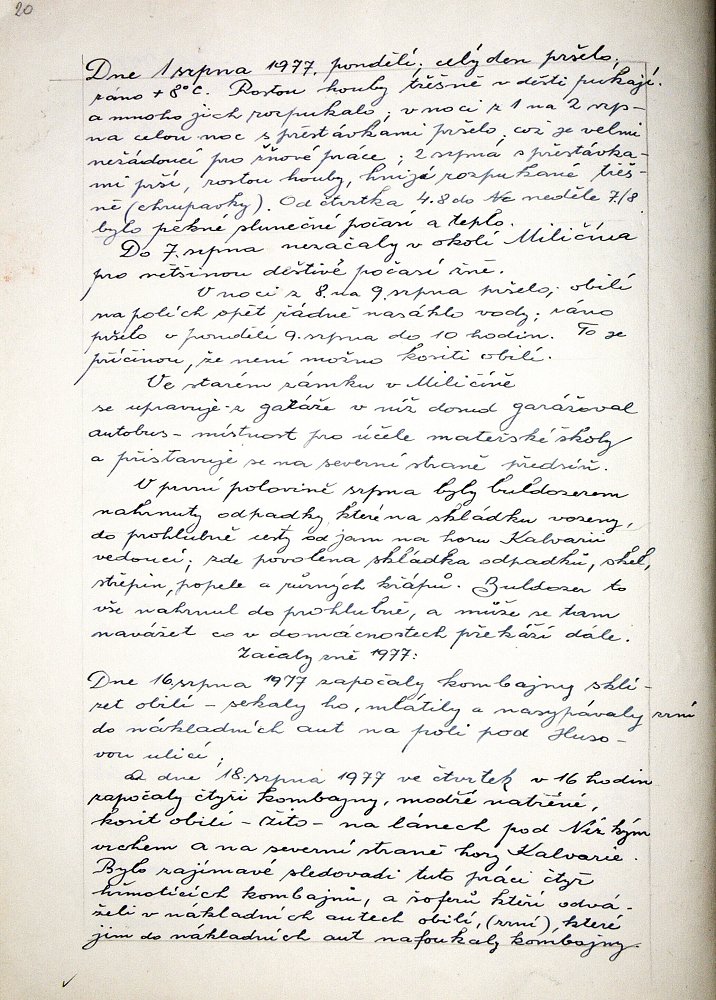 20
Dne 1 srpna 1977. pondělí; celý den pršelo,
ráno + 8°C. Rostou houby třešně v dešti pukají.
a mnoho jich rozpukalo, v noci z 1 na 2 srp-
na celou noc s přestávkami pršelo, což je velmi
nežádoucí pro žňové práce; 2 srpna s přestávka-
mi prší, rostou houby, hnijí rozpukané třeš-
ně (chrupavky). Od čtvrtka 4.8 do Ne neděle 7/8
bylo pěkné slunečné počasí a teplo.
Do 7. srpna nezačaly v okolí Miličína
pro většinou deštivé počasí žně.
V noci z 8. na 9. srpna pršelo, obilí
na polích opět řádně nasáklo vody; ráno
pršelo v pondělí 9. srpna do 10 hodin. To je
příčinou, že není možno kositi obilí.
Ve starém zámku v Miličíně
se upravuje z garáže v níž donud garážoval
autobus - místnost pro účele mateřské školy
a přistavuje se na severní straně předsíň.
V první polovině srpna byly buldozerem
nahrnuty odpadky, které na skládku vozeny,
do prohlubně cesty od jam na horu Kalvarii
vedoucí; zde povolena skládka odpadků, skel,
střepin, popele a různých křápů. Buldozer to
vše nahrnul do prohlubně, a může se tam
navážet co v domácnostech překáží dále.
Začaly žně 1977:
Dne 16. srpna 1977 započaly kombajny skli-
zet obilí - sekaly ho, mlátily a nasypávaly zrní
do nákladních aut na poli pod Huso-
vou ulicí,
A dne 18. srpna 1977 ve čtvrtek v 16 hodin
započaly čtyři kombajny, modře natřené,
kosit obilí - žito - na lánech pod Nízkým
vrchem a na severní straně hory Kalvarie.
Bylo zajímavé sledovadi tuto práci čtyř
hřmotících kombajnů, a šoferů kteří odvá-
želi v nákladních autech obilí, (zrní), které
jim do nákladních aut nafoukaly kombajny.